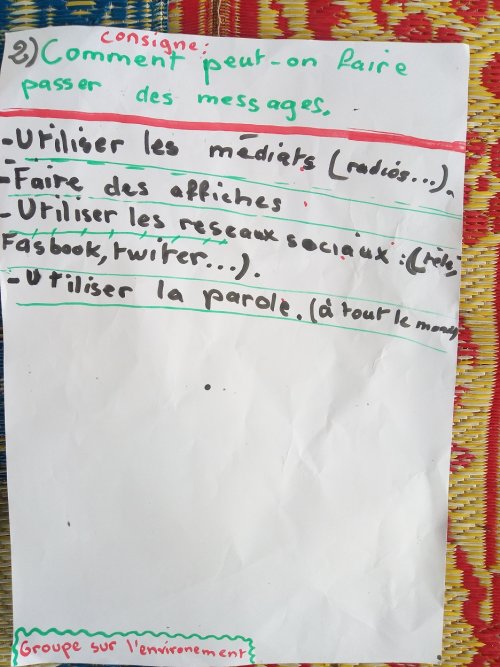 consigne:
2) Comment peut-on faire
passer des messages.
-Utiliser les médiats (radios...).
-Faire des affiches
-Utiliser les reseaux sociaux : (télé,
Fasbook, twiter...).
-Utiliser la parole. (à tout le monde)
Groupe sur l'environement